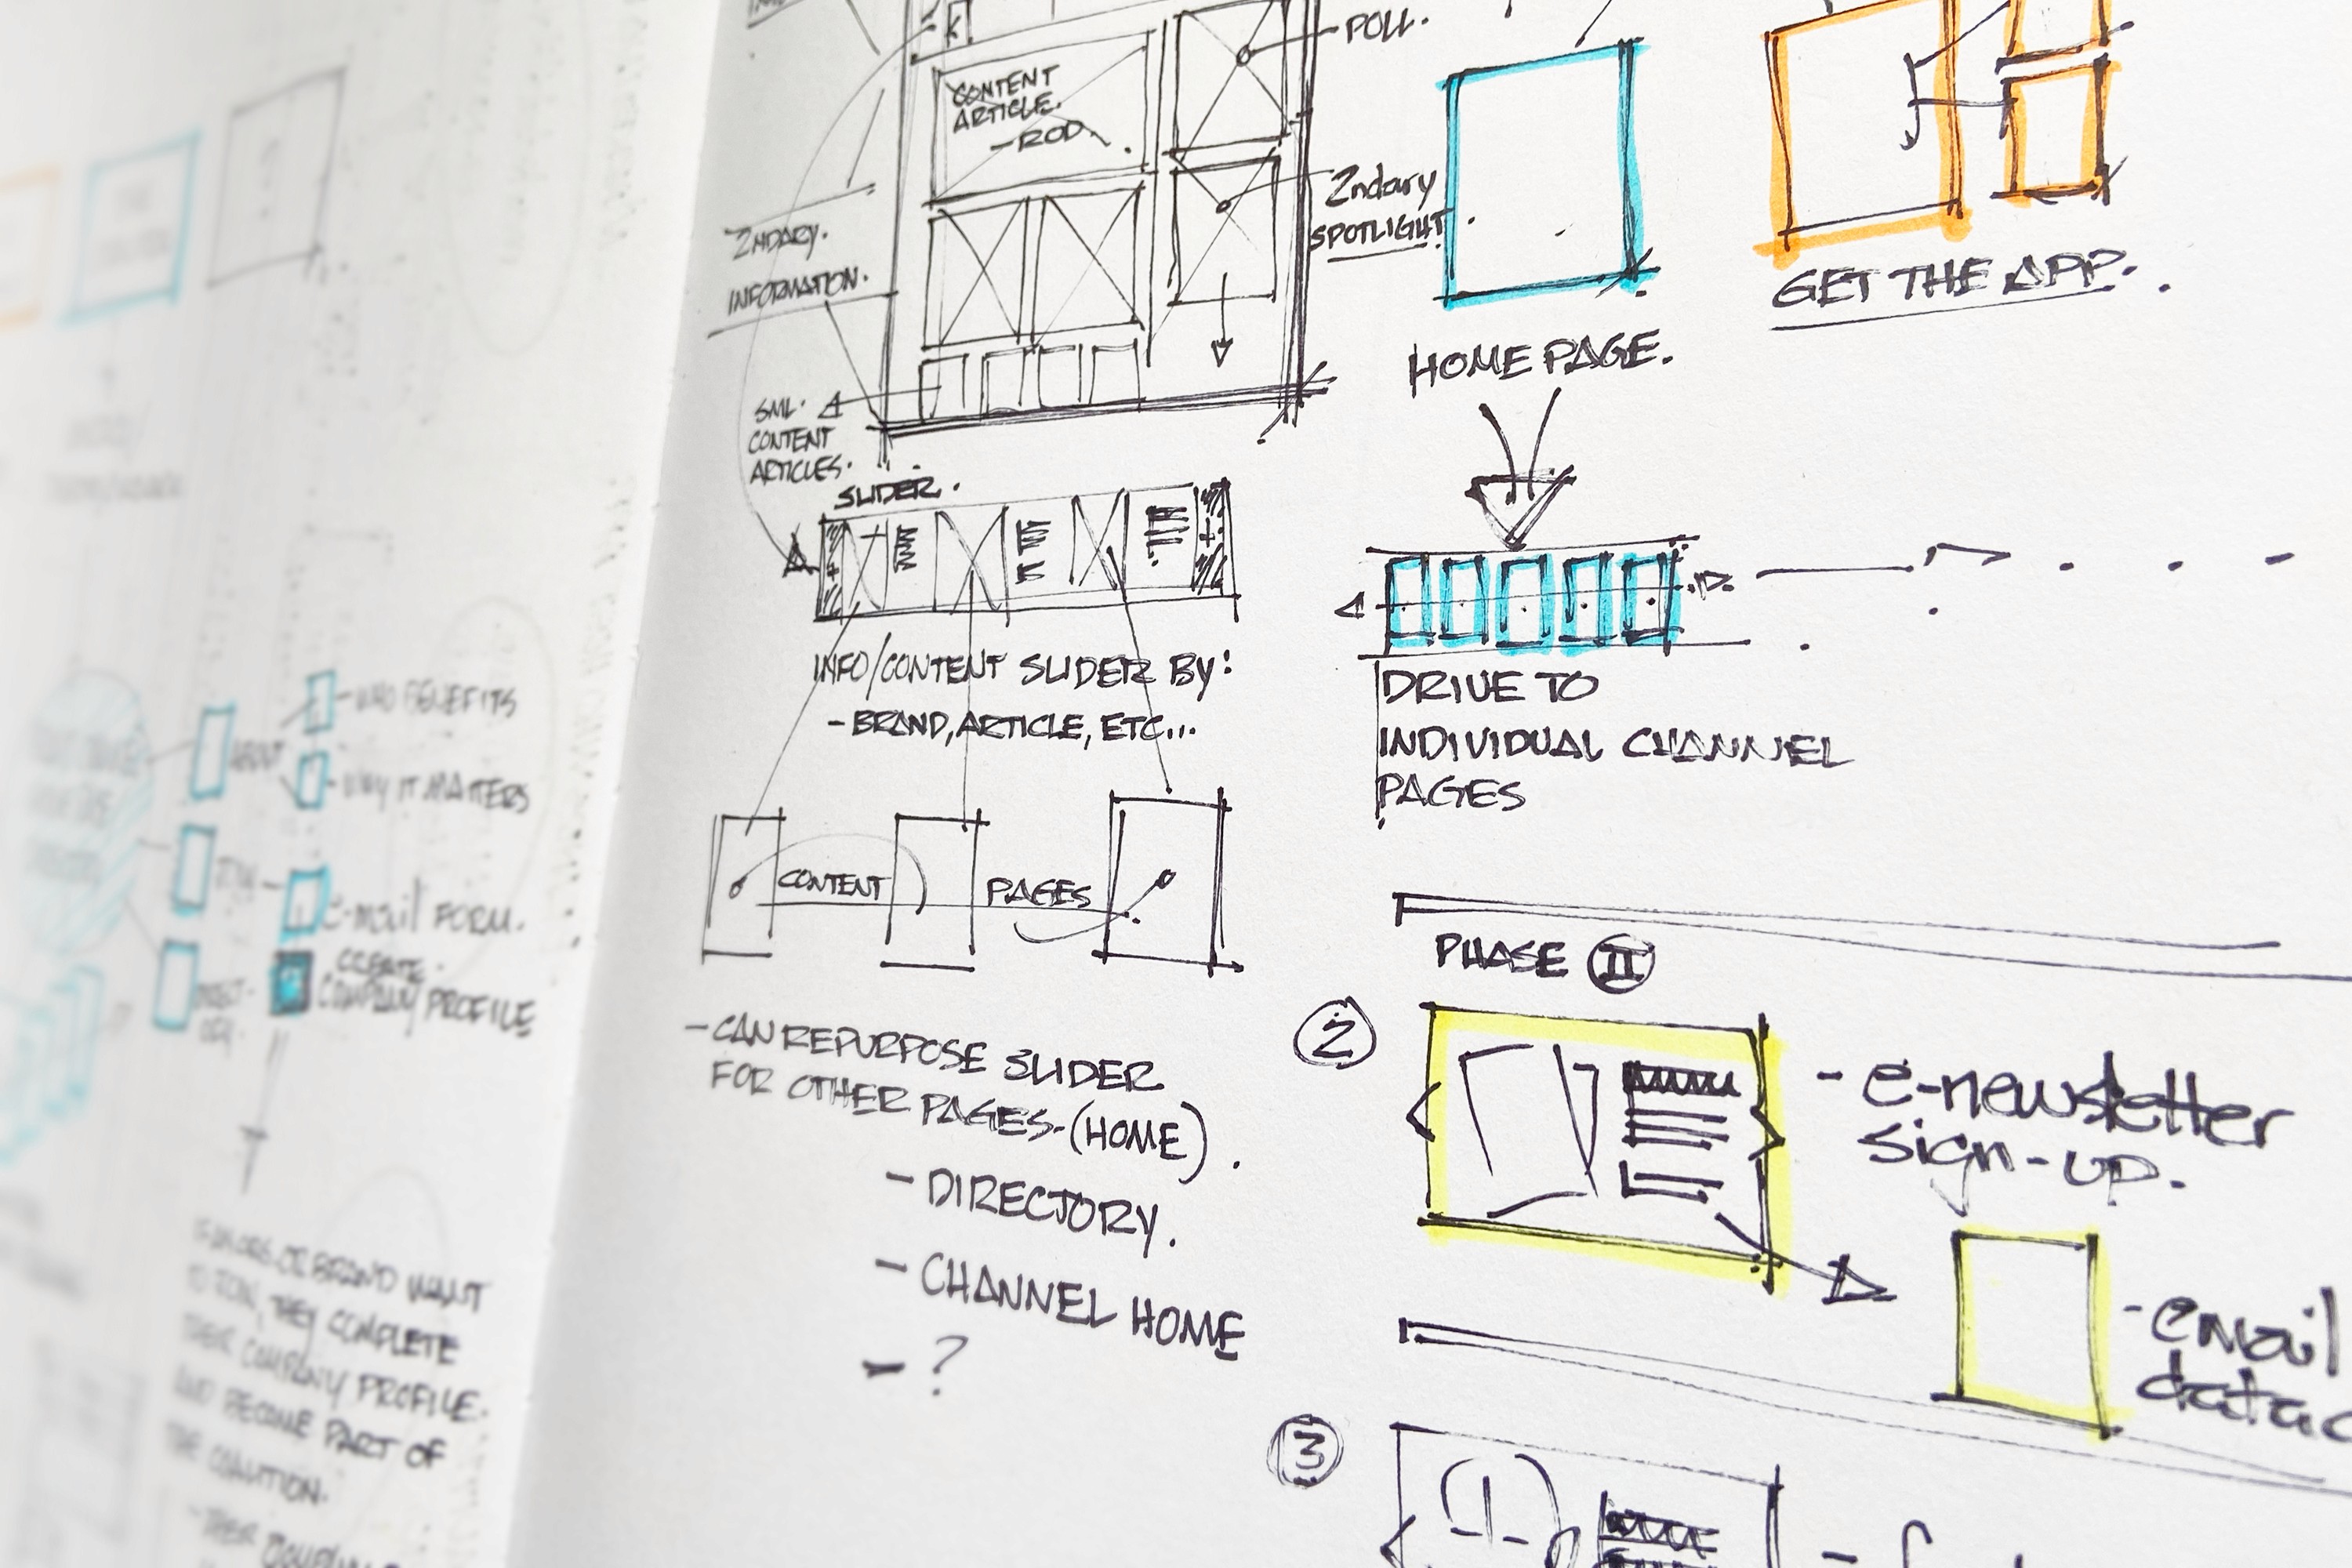 WHO BENEFITS
ABOUT
WHY IT MATTERS
JOIN
e-mail FORM.
CREATE
COMPANY PROFILE
OR BRAND WANT
TO JOIN, THEY COMPLETE
THEIR COMPANY PROFILE.
AND BECOME PART OF
THE COALITION.
POLL.
CONTENT
ARTICLE.
- ROD.
2NDARY.
INFORMATION.
2ndary
SPOTLIGHT.
SML.
CONTENT
ARTICLES.
SLIDER.
INFO/CONTENT SLIDER BY:
- BRAND, ARTICLE, ETC...
CONTENT PAGES
- CAN REPURPOSE SLIDER
FOR OTHER PAGES-(HOME).
- DIRECTORY.
- CHANNEL HOME
- ?
GET THE APP.
HOME PAGE.
DRIVE TO
INDIVIDUAL CHANNEL
PAGES
PHASE II
2
- e-newsletter
sign-up.
- email
3